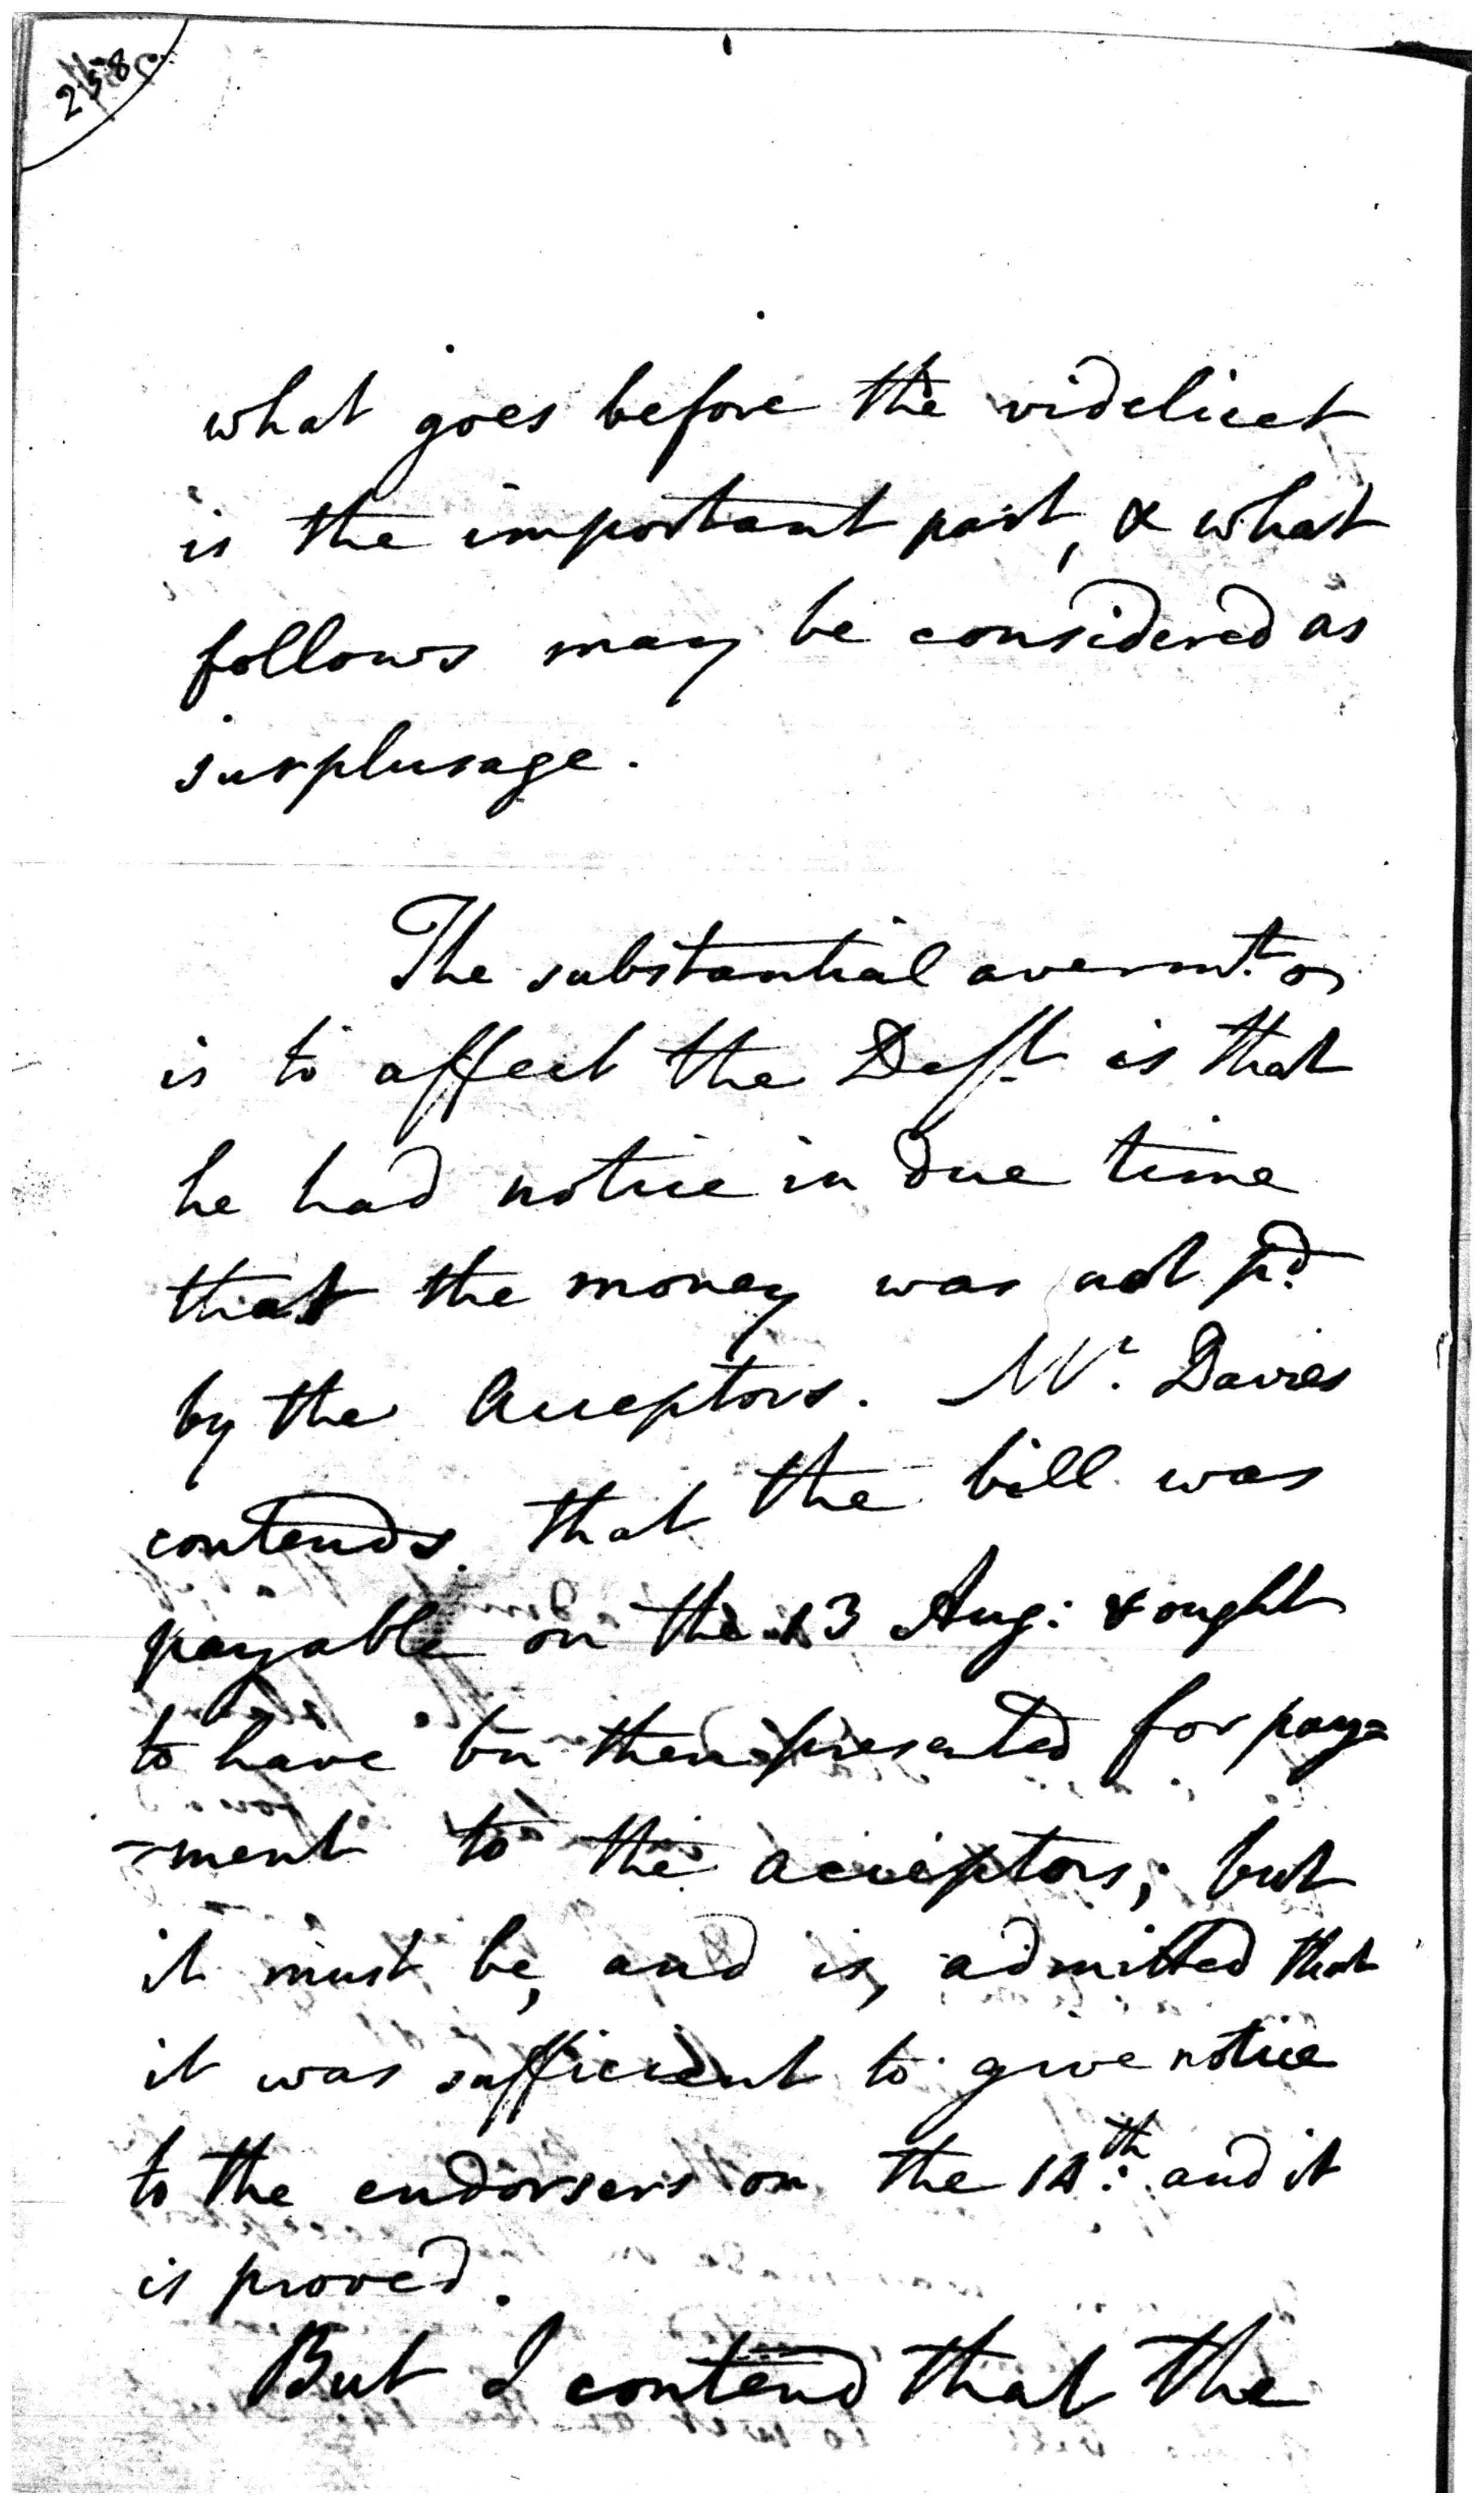 258
what goes before the videlicet
is the important part, & what
follows may be considered as
surplusage.
The substantial avermt.
is to affect the Deft. is that
he had notice in due time
that the money was not pd.
by the Acceptors. Mr. Davies
contends that the bill was
payable on the 13 Aug: & ought
to have bn then presented for pay=
-ment to the acceptors; but
it must be, and is, admitted that
it was sufficient to give notice
to the endorsers on the 14th: and it
is proved.
But I contend that the